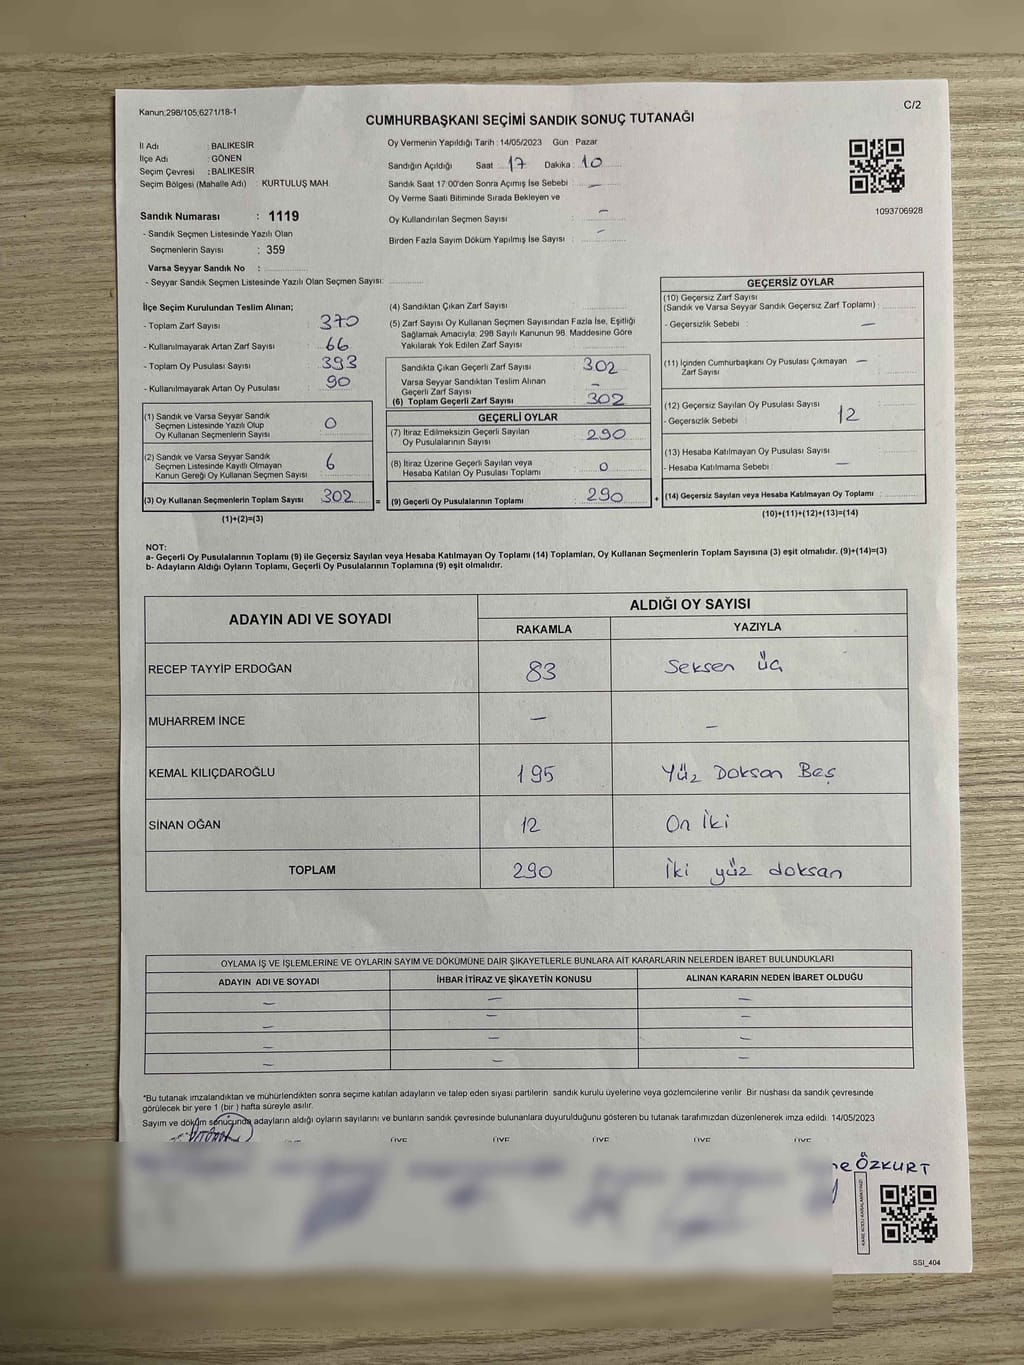 Kanun;298/105,6271/18-1
C/2
CUMHURBAŞKANI SEÇİMİ SANDIK SONUÇ TUTANAĞI
İl Adı : BALIKESİR
İlçe Adı : GÖNEN
Seçim Çevresi : BALIKESİR
Seçim Bölgesi (Mahalle Adı) : KURTULUŞ MAH.
Sandık Numarası : 1119
- Sandık Seçmen Listesinde Yazılı Olan
Seçmenlerin Sayısı : 359
Varsa Seyyar Sandık No :
- Seyyar Sandık Seçmen Listesinde Yazılı Olan Seçmen Sayısı:
Oy Vermenin Yapıldığı Tarih : 14/05/2023 Gün : Pazar
Sandığın Açıldığı Saat : 17 Dakika : 10
Sandık Saat 17:00'den Sonra Açımış İse Sebebi : —
Oy Verme Saati Bitiminde Sırada Bekleyen ve
Oy Kullandırılan Seçmen Sayısı : —
Birden Fazla Sayım Döküm Yapılmış İse Sayısı : -
1093706928
İlçe Seçim Kurulundan Teslim Alınan;
- Toplam Zarf Sayısı : 370
- Kullanılmayarak Artan Zarf Sayısı : 66
- Toplam Oy Pusulası Sayısı : 393
- Kullanılmayarak Artan Oy Pusulası : 90
(1) Sandık ve Varsa Seyyar Sandık
Seçmen Listesinde Yazılı Olup
Oy Kullanan Seçmenlerin Sayısı : 0
(2) Sandık ve Varsa Seyyar Sandık
Seçmen Listesinde Kayıtlı Olmayan
Kanun Gereği Oy Kullanan Seçmen Sayısı : 6
(3) Oy Kullanan Seçmenlerin Toplam Sayısı : 302 =
(1)+(2)=(3)
(4) Sandıktan Çıkan Zarf Sayısı :
(5) Zarf Sayısı Oy Kullanan Seçmen Sayısından Fazla İse, Eşitliği
Sağlamak Amacıyla; 298 Sayılı Kanunun 98. Maddesine Göre
Yakılarak Yok Edilen Zarf Sayısı :
Sandıkta Çıkan Geçerli Zarf Sayısı : 302
Varsa Seyyar Sandıktan Teslim Alınan
Geçerli Zarf Sayısı : —
(6) Toplam Geçerli Zarf Sayısı : 302
GEÇERLİ OYLAR
(7) İtiraz Edilmeksizin Geçerli Sayılan
Oy Pusulalarının Sayısı : 290
(8) İtiraz Üzerine Geçerli Sayılan veya
Hesaba Katılan Oy Pusulası Toplamı : 0
(9) Geçerli Oy Pusulalarının Toplamı : 290 +
GEÇERSİZ OYLAR
(10) Geçersiz Zarf Sayısı
(Sandık ve Varsa Seyyar Sandık Geçersiz Zarf Toplamı) :
- Geçersizlik Sebebi : —
(11) İçinden Cumhurbaşkanı Oy Pusulası Çıkmayan —
Zarf Sayısı :
(12) Geçersiz Sayılan Oy Pusulası Sayısı : 12
- Geçersizlik Sebebi :
(13) Hesaba Katılmayan Oy Pusulası Sayısı :
- Hesaba Katılmama Sebebi : —
(14) Geçersiz Sayılan veya Hesaba Katılmayan Oy Toplamı :
(10)+(11)+(12)+(13)=(14)
NOT:
a- Geçerli Oy Pusulalarının Toplamı (9) ile Geçersiz Sayılan veya Hesaba Katılmayan Oy Toplamı (14) Toplamları, Oy Kullanan Seçmenlerin Toplam Sayısına (3) eşit olmalıdır. (9)+(14)=(3)
b- Adayların Aldığı Oyların Toplamı, Geçerli Oy Pusulalarının Toplamına (9) eşit olmalıdır.
ADAYIN ADI VE SOYADI
ALDIĞI OY SAYISI
RAKAMLA YAZIYLA
RECEP TAYYİP ERDOĞAN 83 Seksen üç
MUHARREM İNCE — —
KEMAL KILIÇDAROĞLU 195 Yüz Doksan Beş
SİNAN OĞAN 12 On İki
TOPLAM 290 İki yüz doksan
OYLAMA İŞ VE İŞLEMLERİNE VE OYLARIN SAYIM VE DÖKÜMÜNE DAİR ŞİKAYETLERLE BUNLARA AİT KARARLARIN NELERDEN İBARET BULUNDUKLARI
ADAYIN ADI VE SOYADI İHBAR İTİRAZ VE ŞİKAYETİN KONUSU ALINAN KARARIN NEDEN İBARET OLDUĞU
— — —
— — —
— — —
— — —
*Bu tutanak imzalandıktan ve mühürlendikten sonra seçime katılan adayların ve talep eden siyasi partilerin sandık kurulu üyelerine veya gözlemcilerine verilir. Bir nüshası da sandık çevresinde
görülecek bir yere 1 (bir ) hafta süreyle asılır.
Sayım ve döküm sonucunda adayların aldığı oyların sayılarını ve bunların sandık çevresinde bulunanlara duyurulduğunu gösteren bu tutanak tarafımızdan düzenlenerek imza edildi. 14/05/2023
ÖZKURT
SSI_404